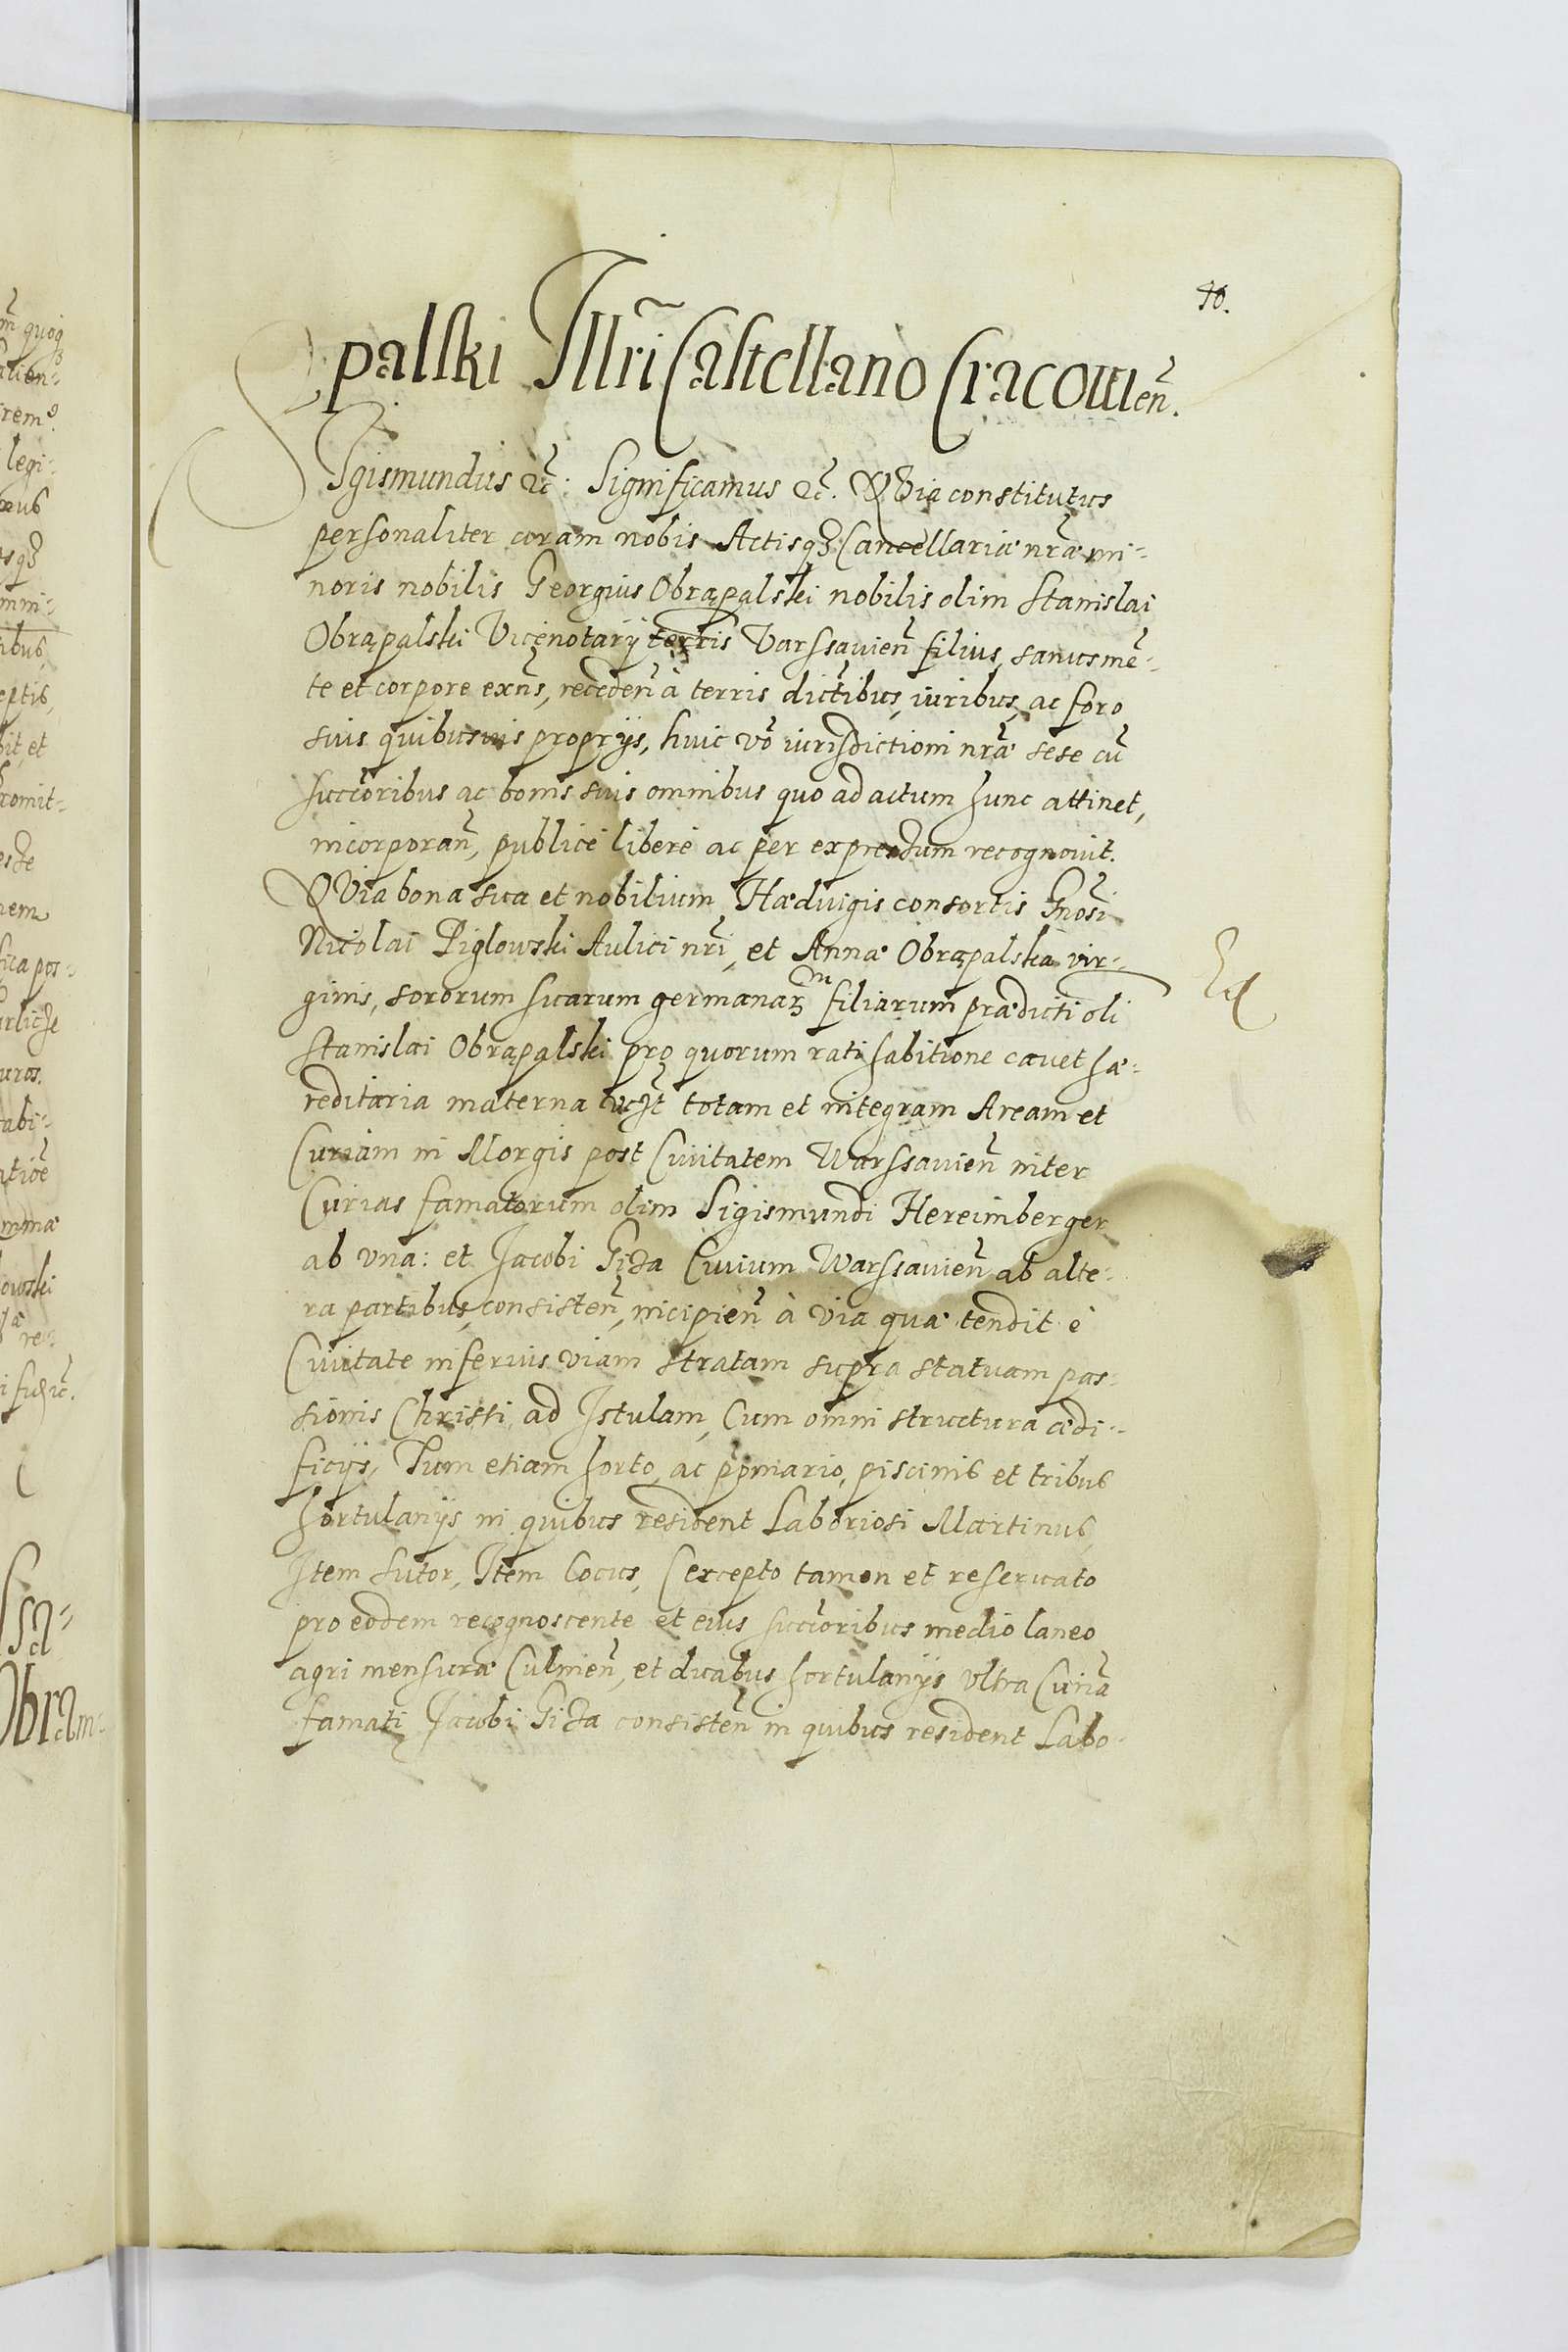 10.
palski Illri Castellano Cracowien̄.
SIgismundus &c̄: Significamus &c̄. QVia constitutus
personaliter coram nobis Actisqꝫ Cancellariæ nr̄æ mi-
noris nobilis Georgius Obrąpalski nobilis olim Stanislai
Obrąpalski Vicenotarij terris Varssauien̄ filius, sanus mē-
te et corpore exn̄s, receden̄ à terris dictibus, iuribus, ac foro
suis quibusuis proprijs, huic vō iurisdictioni nr̄æ sese cū
succōribus ac bonis suis omnibus quo ad actum hunc attinet,
incorporan̄, publicè liberè ac per expressum recognouit.
QVia bona sua et nobilium Hæduigis consortis Gnosi
Nicolai Piglowski Aulici nr̄i, et Annæ Obrąpalska vir-
ginis, sororum suarum germanaꝝ m filiarum prædicti oli
Stanislai Obrąpalski pro quorum ratihabitione cauet hæ-
reditaria materna totam et integram Aream et
Curiam in Morgis post Ciuitatem Warssauien̄ inter
Curias famatorum olim Sigismundi Hereimberger
ab vna: et Jacobi Giza Ciuium Warssauien̄ ab alte-
ra partibus, consisten̄, incipien̄ à via quæ tendit è
Ciuitate inferius viam stratam supra statuam pas-
sionis Christi ad Istulam, Cum omni structura ædi-
ficijs, Tum etiam horto, ac pomario, piscinis et tribus
hortulanijs in quibus resident Laboriosi Martinus,
Item Sutor, Item Cocus, (excepto tamen et reseruato
pro eodem recognoscente et eius succōribus medio laneo
agri mensuræ Culmen̄, et duabus hortulanijs vltra Curiā
famati Jacobi Giza consisten̄ in quibus resident Labo-